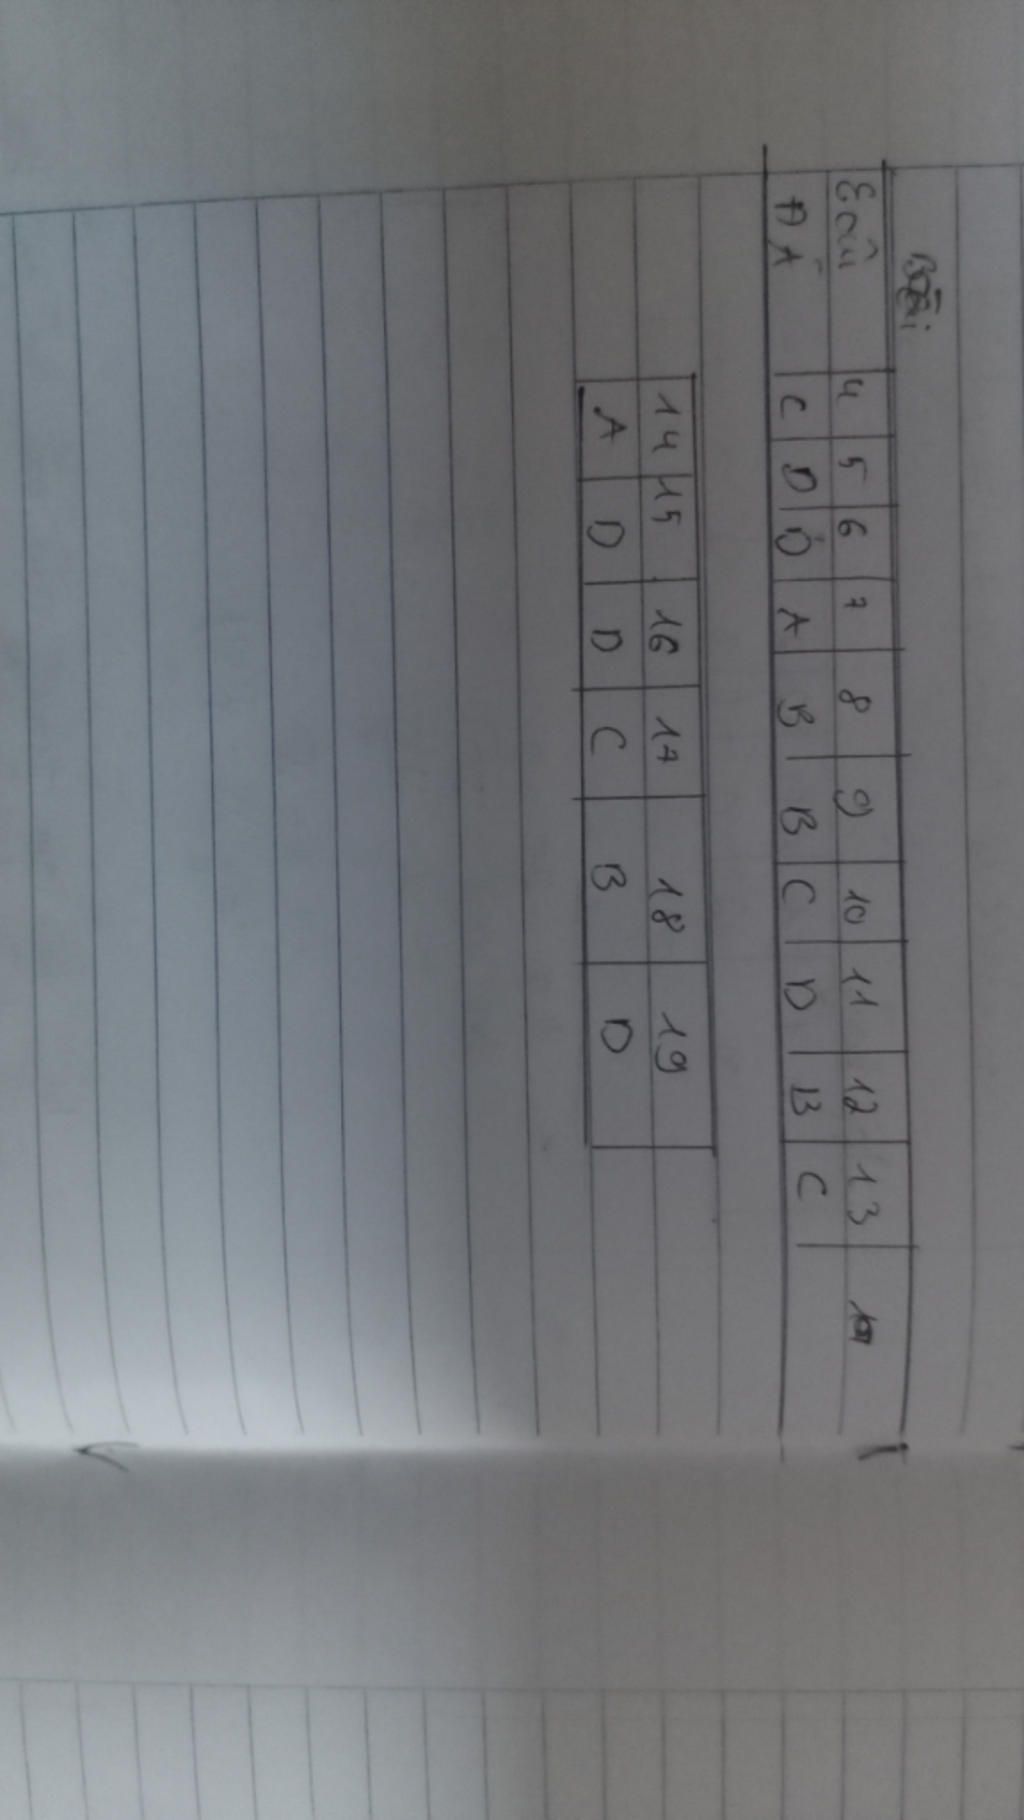 Bài
Câu 4 5 6 7 8 9 10 11 12 13
ĐÁ C D D A B B C D B C
14 15 16 17 18 19
A D D C B D